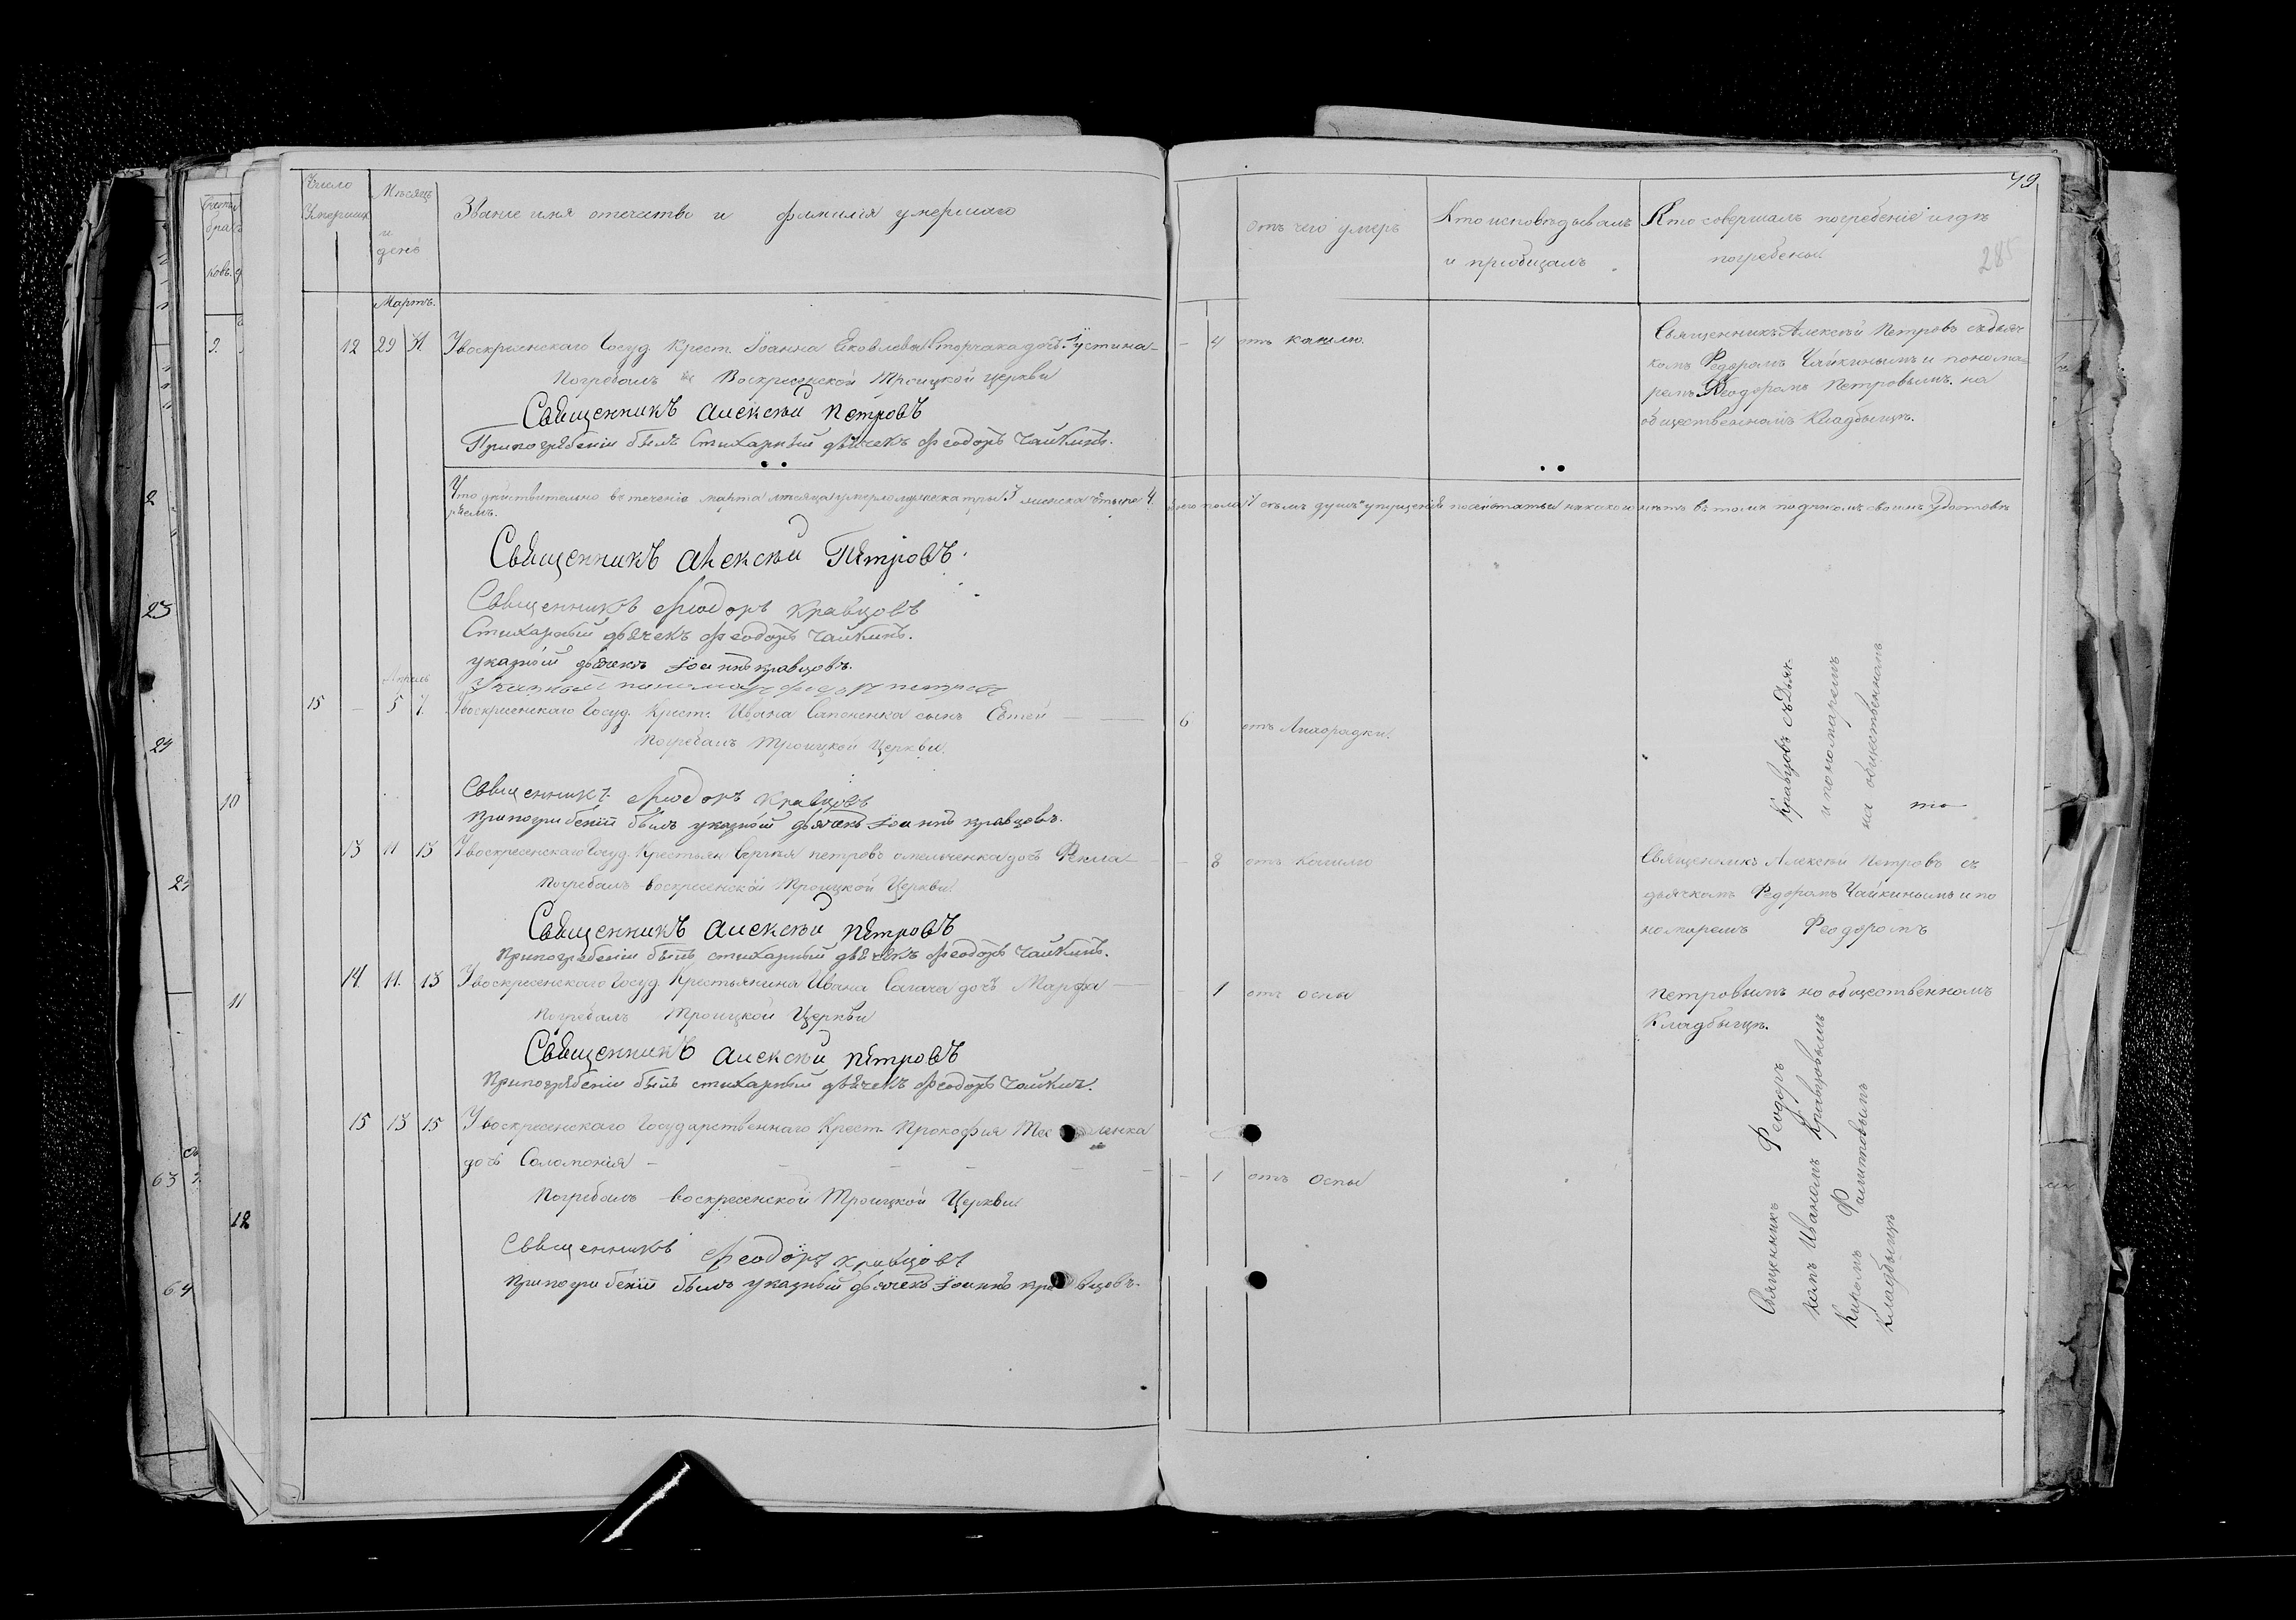 Число Умершихъ
Мѣсяцъ и день
Званіе имя отечество и фамилія умершаго
отъ чего умеръ
Кто исповѣдывалъ и пріобщалъ
Кто совершалъ погребеніе и гдѣ погребены
49
285
Мартъ.
12 29 31 Увоскресенскаго Госуд. Крест. Іоанна Яковлева дочь Іустина
4 отъ кашлю
Погребалъ Воскресенской Троицкой церкви
Священникъ Алексѣй Петровъ
Припогребеніи былъ Стихарный дьячекъ Феодоръ Чайкинъ.
Священникъ Алексѣй Петровъ съ дьяч
комъ Федоромъ Чайкинымъ и понома=
ремъ Феодоромъ Петровымъ. на
общественномъ Кладбыщѣ.
Что дѣйствительно въ теченіе марта мѣсяца умерло мужеска три 3 женска четыре 4
Священникъ Алексѣй Петровъ.
Священникъ Феодоръ Кравцовъ
Стихарный дьячекъ Феодоръ Чайкинъ.
указный дьячекъ Іоаннъ кравцовъ.
Указный пономарь Федоръ петровъ
Апрель
15 — 5 7. Увоскресенскаго Госуд. Крест. Ивана Сапоненка сынъ Евтей
6 отъ Лихорадки.
Погребалъ Троицкой Церкви.
Священникъ Феодоръ Кравцовъ
Припогребеніи былъ указный дьячекъ Іоаннъ кравцовъ.
Кравцовъ съ Дьяч
и пономаремъ
на общественномъ
то
13 11 13 Увоскресенскаго Госуд. Крестьян. Сергѣя петровъ омельченка дочь Фекла
8 отъ Кашлю
Погребалъ воскресенской Троицкой Церкви
Священникъ Алексѣй Петровъ
Припогребеніи былъ стихарный дьячекъ Феодоръ Чайкинъ.
Священникъ Алексѣй Петровъ съ
дьячкомъ Федоромъ Чайкинымъ и по
номаремъ Феодоромъ
14. 11. 13 Увоскресенскаго Госуд. Крестьянина Ивана Сагача дочь Марфа
1 отъ оспы
Погребалъ Троицкой Церкви
Священникъ Алексѣй Петровъ
Припогребеніи былъ стихарный дьячекъ Феодоръ Чайкинъ.
петровымъ на общественномъ
Кладбыщѣ.
15 13 15 Увоскресенскаго Государственнаго Крест. Прокофія
дочь Соломонія
1 отъ Оспы
Погребалъ воскресенской Троицкой Церкви
Священникъ Феодоръ Кравцовъ
Припогребеніи былъ указный дьячекъ Іоаннъ кравцовъ.
Священникъ Феодоръ
комъ Иваномъ Кравцовымъ
Кладбыщѣ